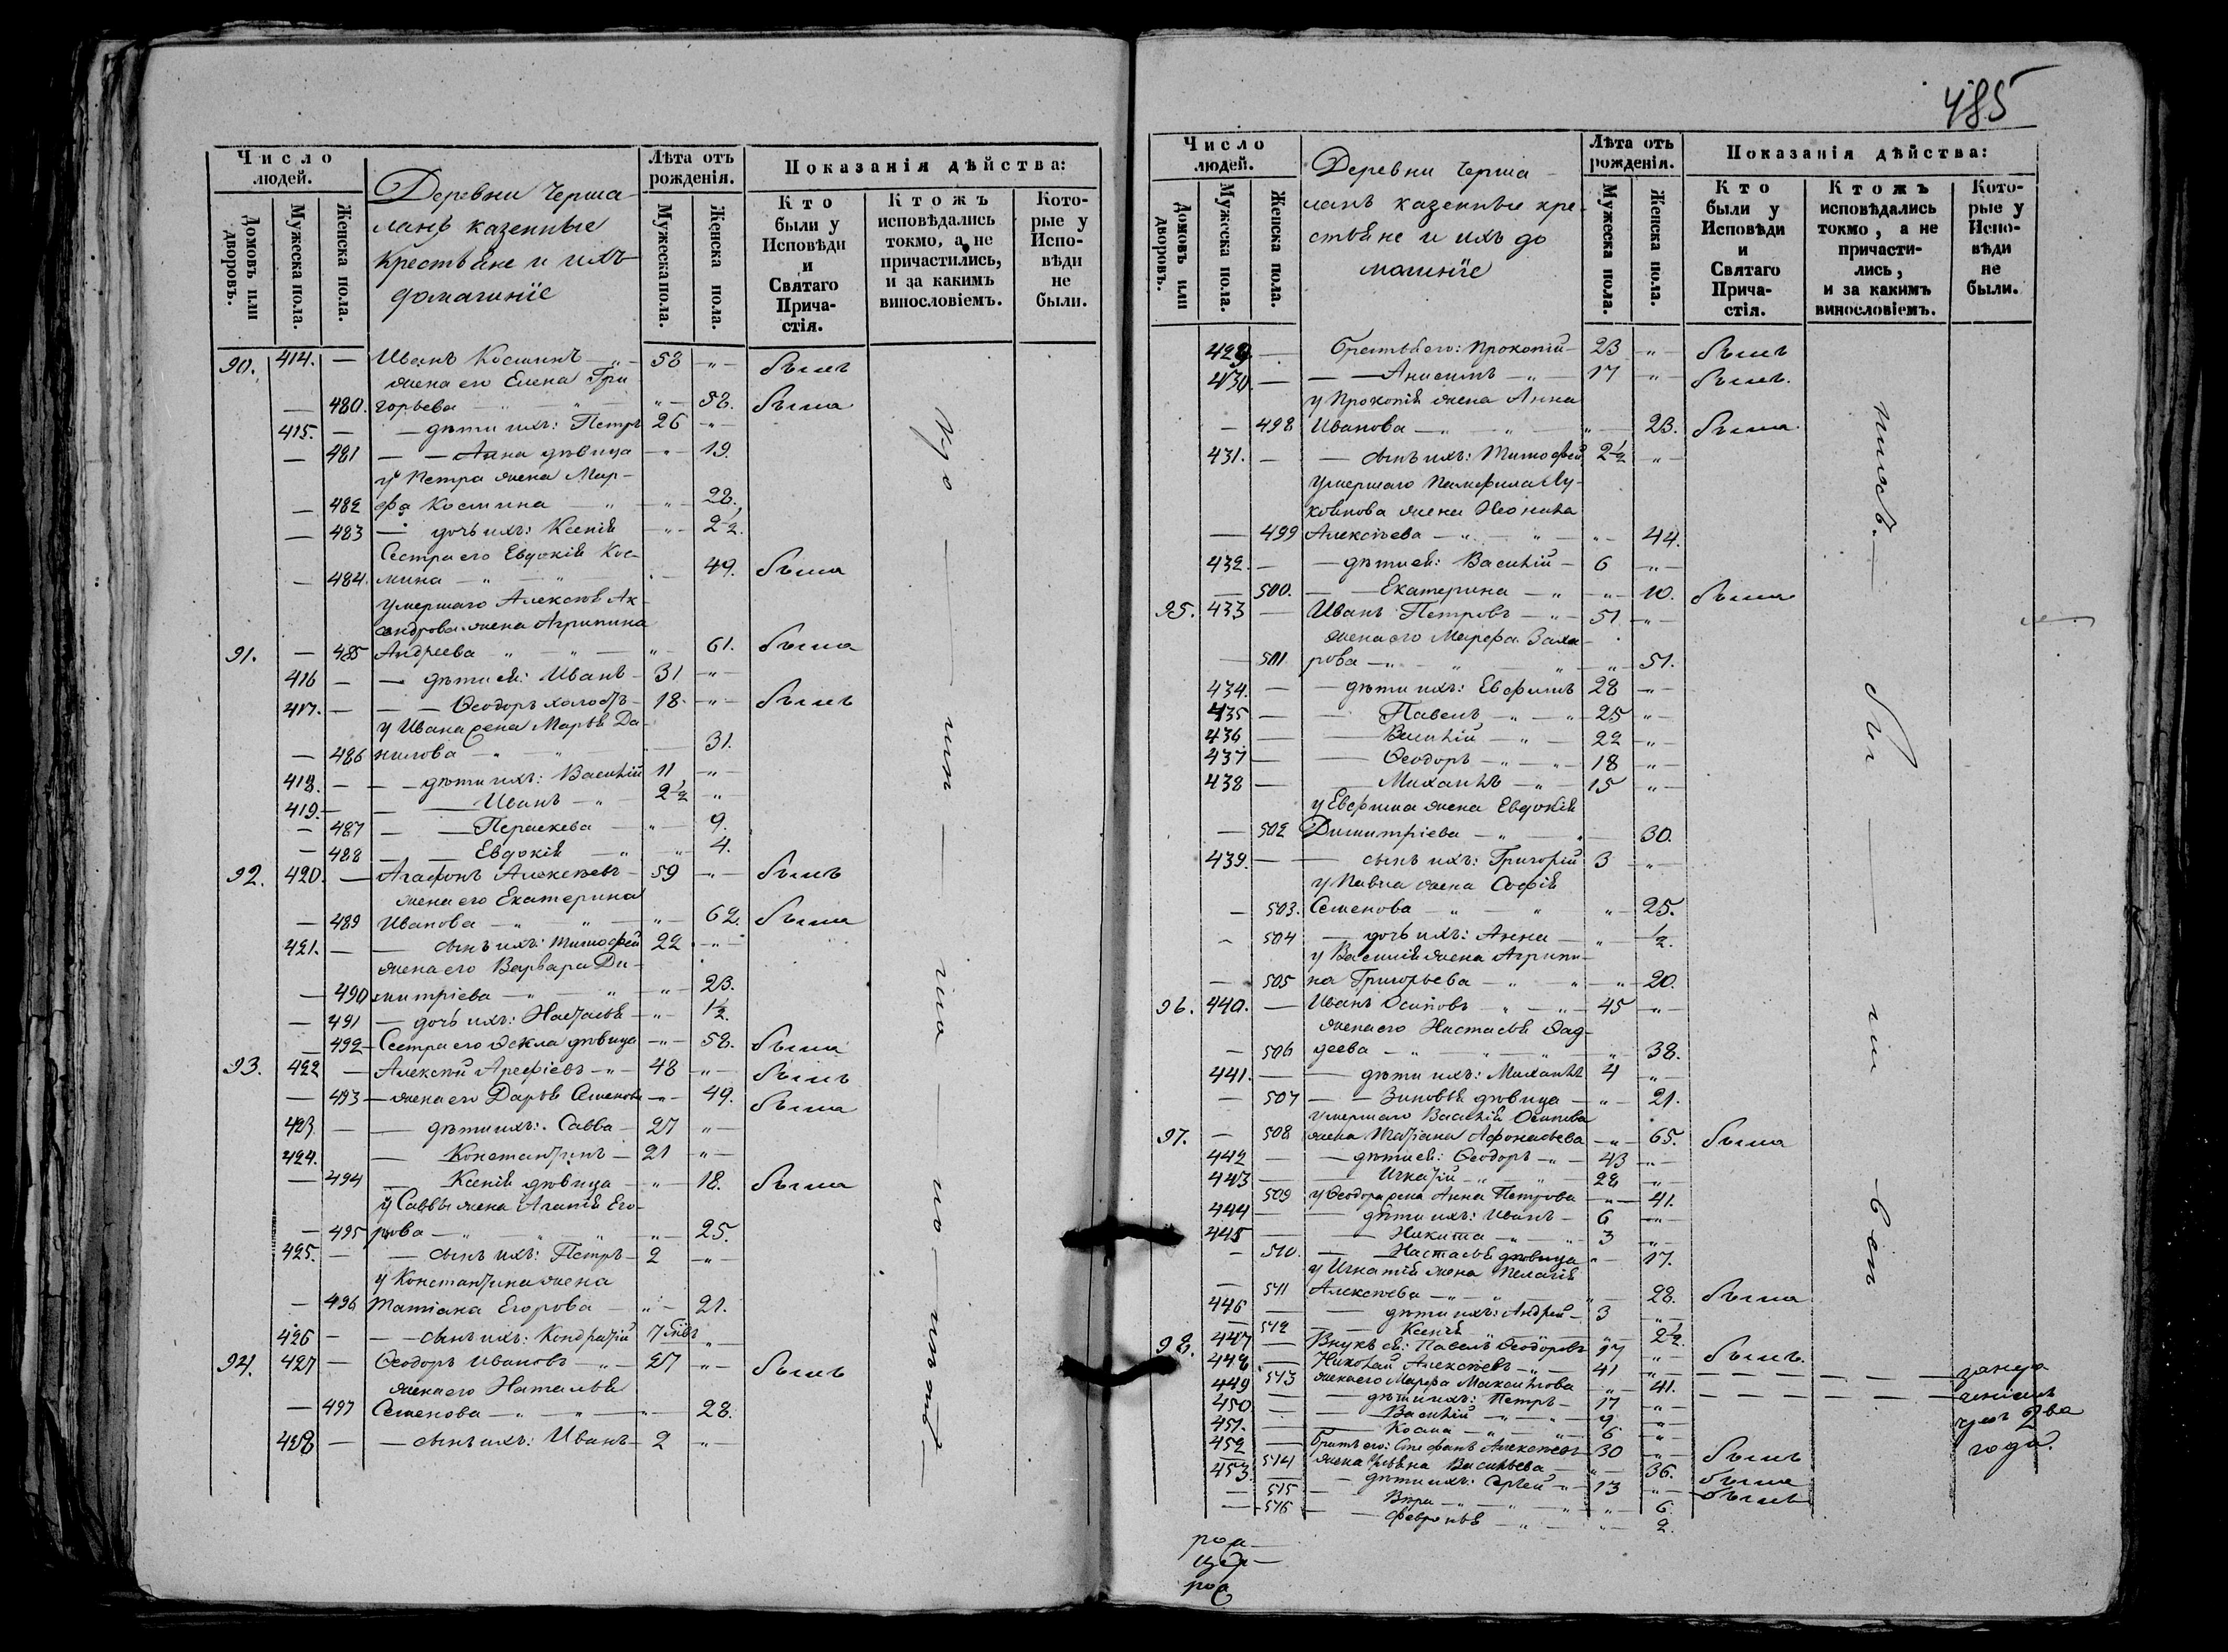 485
Число людей.
Домовъ или дворовъ.
Мужеска пола.
Женска пола.
Деревни Черша-
ланъ казенные
крестьяне и ихъ
домашніе
Лѣта отъ рожденія.
Мужеска пола.
Женска пола.
Показанія дѣйства:
Кто были у Исповѣди и Святаго Причастія.
Ктожъ исповѣдались токмо, а не причастились, и за какимъ винословіемъ.
Которые у Исповѣди не были.
90. 414. — Иванъ Косминъ — 58 — былъ
жена его Елена Гри
— 480. горьева — 58. была
415. — дѣти ихъ: Петръ 26
— 481 — Анна дѣвица — 19.
у Петра жена Мар-
— 482 фа Космина — 28.
— 483 — дочь ихъ: Ксенія — 2½.
Сестра его Евдокія Кос-
— 484. мина — 49. была
умершаго Алексѣя Ак-
сандрова жена Агрипина
91. — 485 Андреева — 61. была
416 — дѣти ея: Иванъ — 31
417. — Ѳеодоръ холостъ — 18. — былъ
у Ивана жена Марья Да-
— 486 нилова — 31.
418. — дѣти ихъ: Василій 11
419. — Иванъ — 2½
— 487 — Параскева — 9.
— 488 — Евдокія — 4.
92. 420. — Агафонъ Алексѣевъ — 59 — былъ
жена его Екатерина
— 489 Иванова — 62. была
421. — сынъ ихъ: Тимофей 22
жена его Варвара Ди-
— 490 митріева — 23.
— 491 — дочь ихъ: Наталья — 1½.
— 492 — Сестра его Ѳекла дѣвица — 58. была
93. 422 — Алексѣй Арефіевъ — 48 — былъ
— 493 — жена его Дарья Семенова — 49. была
423. — дѣти ихъ: Савва — 27
424. — Константинъ — 21
— 494 Ксенія дѣвица — 18. была
у Саввы жена Агапія Его-
— 495 рова — 25.
425. — сынъ ихъ: Петръ — 2
у Константина жена
— 496 Татіана Егорова — 21.
426 — сынъ ихъ: Кондратій 7
94. 427 — Ѳеодоръ Ивановъ — 27 — былъ
жена его Наталья
— 497 Семенова — 28.
428 — сынъ ихъ: Иванъ — 2
Число людей.
Домовъ или дворовъ.
Мужеска пола.
Женска пола.
Деревни Черша-
ланъ казенные кре-
стьяне и ихъ до
машніе
Лѣта отъ рожденія.
Мужеска пола.
Женска пола.
Показанія дѣйства:
Кто были у Исповѣди и Святаго Причастія.
Ктожъ исповѣдались токмо, а не причастились, и за какимъ винословіемъ.
Которые у Исповѣди не были.
429 — братья его: Прокопій — 23 — былъ
430. — Анисимъ — 17 — былъ.
у Прокопія жена Анна
— 498 Иванова — 23. была
431. — сынъ ихъ: Тимофей 2½
умершаго Памфила Лу-
коянова жена Неонила
— 499 Алексѣева — 44.
432. — дѣти ея: Василій — 6
— 500. — Екатерина — 10. была
95. 433 — Иванъ Петровъ — 51
жена его Марфа Заха
— 501 рова — 51.
434. — дѣти ихъ: Евфимъ 28
435 — Павелъ — 25
436 — Василій — 22
437 — Ѳеодоръ — 18
438 — Михаилъ — 15
у Евфима жена Евдокія
— 502 Димитріева — 30.
439. — сынъ ихъ: Григорій 3
у Павла жена Софія
— 503. Семенова — 25.
504 — дочь ихъ: Анна — ½.
у Василія жена Агрипи-
— 505 на Григорьева — 20.
96. 440. — Иванъ Осиповъ — 45
жена его Настасья Ѳад-
— 506 деева — 38.
441. — дѣти ихъ: Михаилъ 4
— 507 — Зиновья дѣвица — 21.
умершаго Василія Осипова
97. — 508 жена Татіана Афонасьева — 65. была
442 — дѣти ея: Ѳеодоръ — 43
443 — Игнатій — 28
509 у Ѳеодора жена Анна Петрова — 41.
444 — дѣти ихъ: Иванъ — 6
445 — Никита — 3
— 510. — Настасья дѣвица — 17.
у Игнатія жена Пелагія
— 511 Алексѣева — 28. была
446 — дѣти ихъ: Андрей — 3
— 512 — Ксенія — 2½
447 — Внукъ ея: Павелъ Ѳеодоровъ 17 — былъ.
98. 448. — Николай Алексѣевъ — 41
513 жена его Марфа Максимова — 41.
449 — дѣти ихъ: Петръ — 17
450 — Василій — 9
451. — Косма — 6
452 — братъ его: Стефанъ Алексѣевъ 30 — былъ
514 жена Ульяна Васильева — 36. была
453. — дѣти ихъ: Сергей — 13 — былъ
515 — Вѣра — 6.
— 516 — Февронья — 2.
два
года.